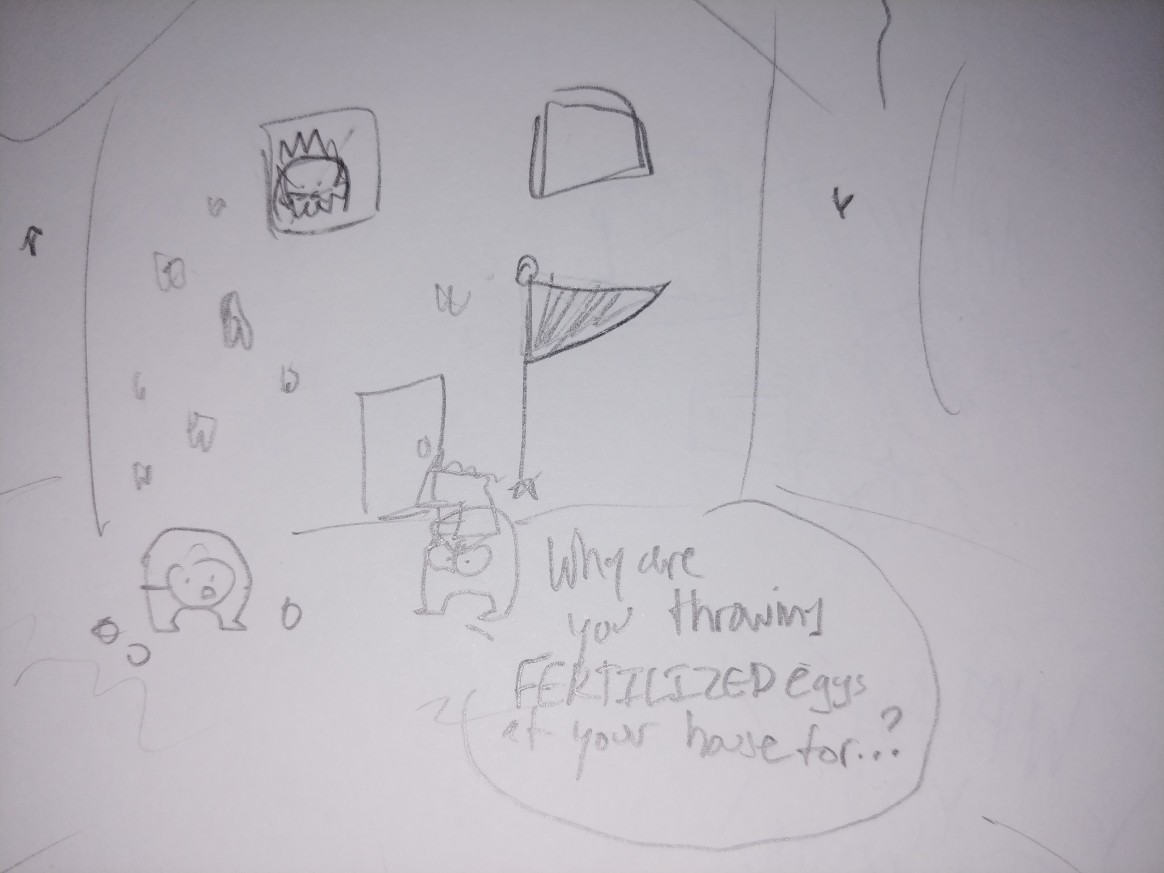 Why are
you throwing
FERTILIZED eggs
at your house for...?